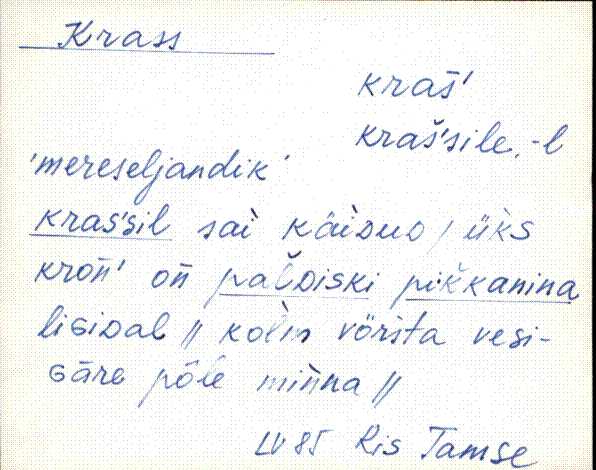 Krass
kraš̄'
kraš'sile, -l
'mereseljandik'
kras'sil sai käiDuD / üks
kron̄' on̄ palDiski pikkanina
liGiDal // kolm vörsta vesi-
Gäre põle minna //
LV 85 Ris Tamse